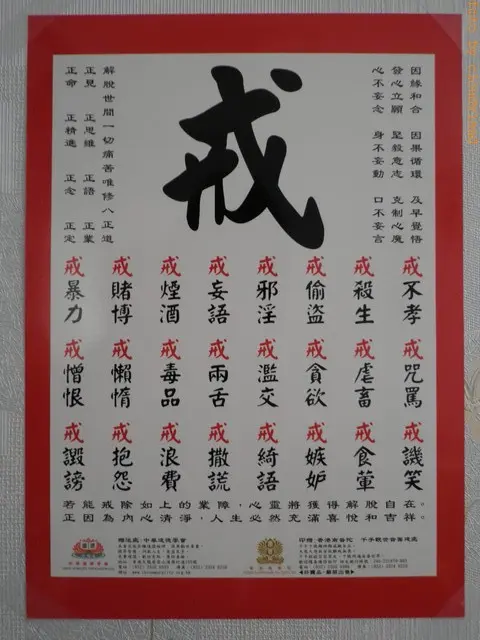 因緣和合 因果循環 及早覺悟
發心立願 堅毅意志 克制心魔
心不妄念 身不妄動 口不妄言
戒
解脫世間一切痛苦唯修八正道
正見 正思維 正語 正業
正命 正精進 正念 正定
戒不孝
戒殺生
戒偷盜
戒邪淫
戒妄語
戒煙酒
戒賭博
戒暴力
戒咒罵
戒虐畜
戒貪欲
戒濫交
戒兩舌
戒毒品
戒懶惰
戒憎恨
戒譏笑
戒食葷
戒嫉妒
戒綺語
戒撒謊
戒浪費
戒抱怨
戒譭謗
若能戒除如上的業障,心靈將獲得解脫和自在。
正因為內心清淨,人生必然充滿喜悅吉祥。